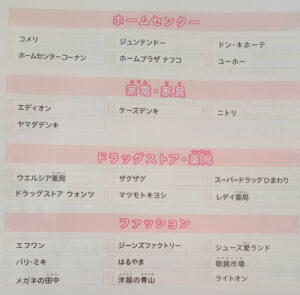 ホームセンター
コメリ ジュンテンドー ドン・キホーテ
ホームセンターコーナン ホームプラザ ナフコ ユーホー
家電・家具
エディオン ケーズデンキ ニトリ
ヤマダデンキ
ドラッグストア・薬局
ウエルシア薬局 ザグザグ スーパードラッグひまわり
ドラッグストア ウォンツ マツモトキヨシ レデイ薬局
ファッション
エフワン ジーンズファクトリー シューズ愛ランド
パリ・ミキ はるやま 眼鏡市場
メガネの田中 洋服の青山 ライトオン